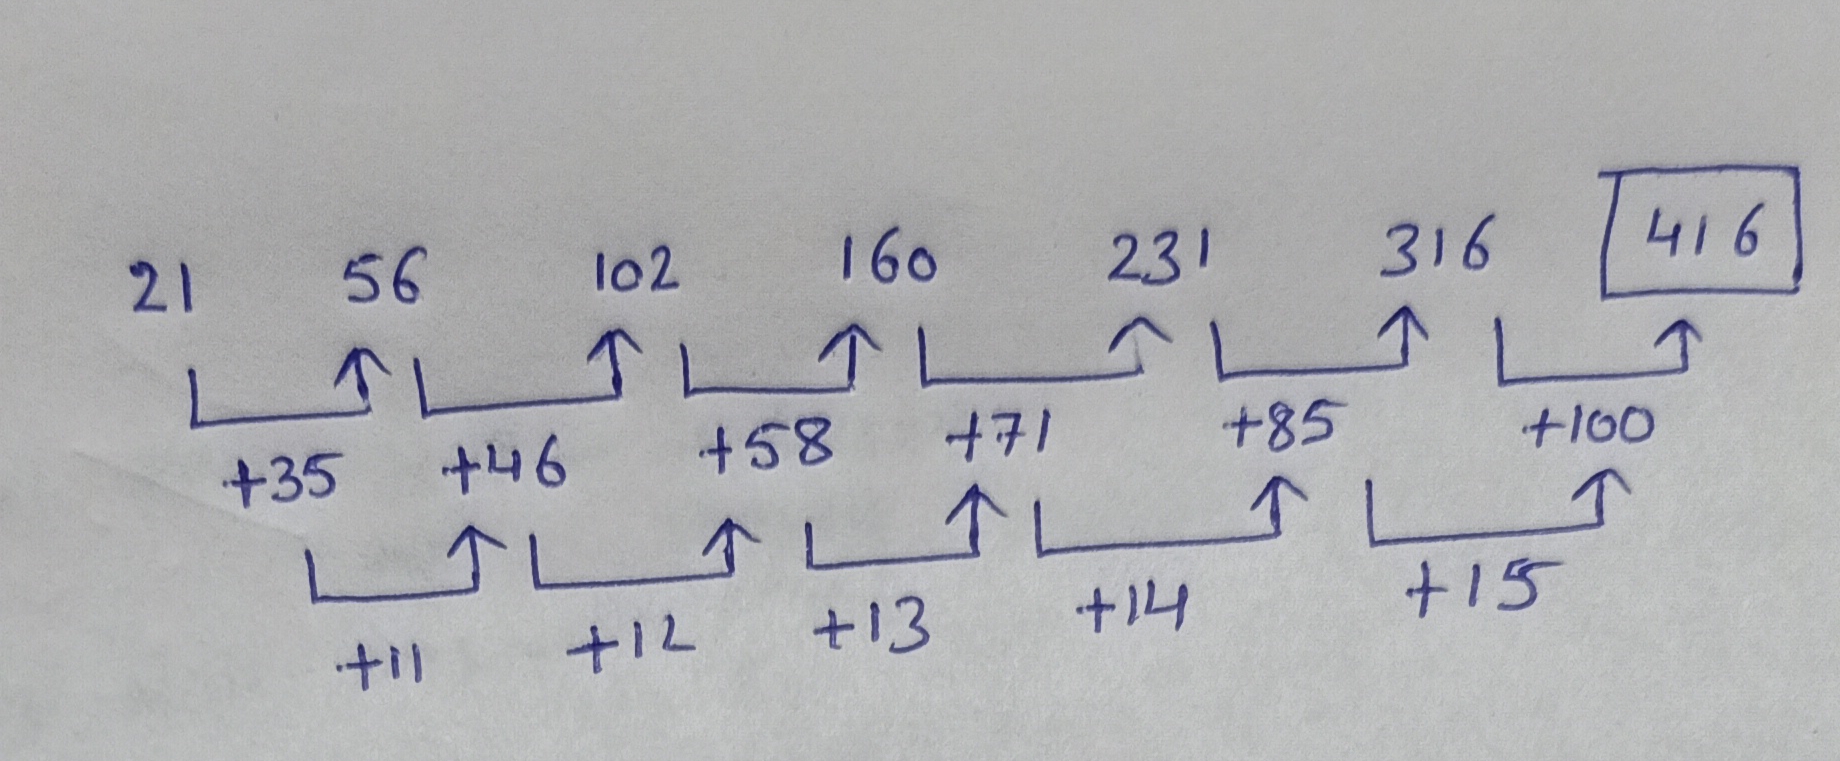 21 56 102 160 231 316 416
+35 +46 +58 +71 +85 +100
+11 +12 +13 +14 +15